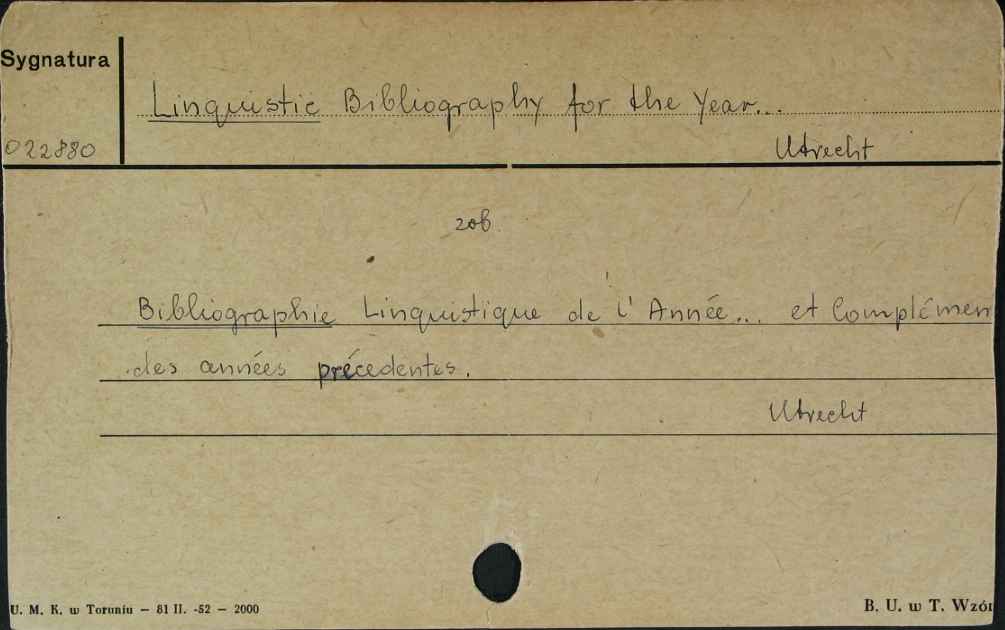 Sygnatura
Linguistic Bibliography for the Year...
022880
Utrecht
zob.
Bibliographie Linguistique de l'Année... et Complémen
des années précedentes.
Utrecht
U. M. K. w Toruniu — 81 II. -52 — 2000
B. U. w T. Wzór